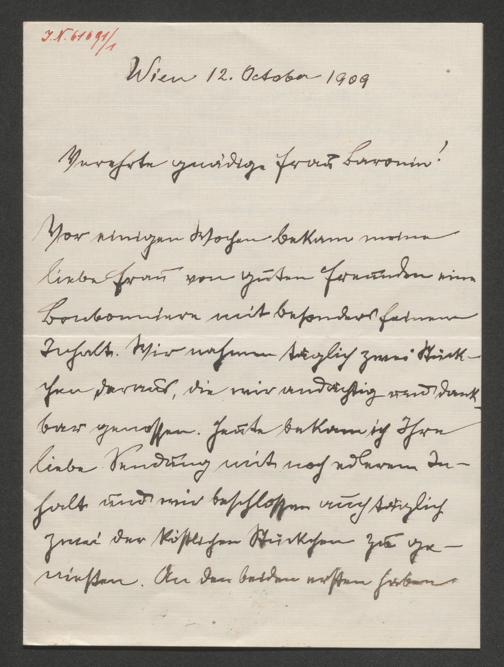 I.N. 61691/1
Wien 12. October 1909
Verehrte gnädige Frau Baronin!
Vor einigen Wochen bekam meine
liebe Frau von guten Freunden eine
Bonbonniere mit besonders feinem
Inhalt. Wir nahmen täglich zwei Stück-
chen daraus, die wir andächtig und dank-
bar genossen. Heute bekam ich Ihre
liebe Sendung mit noch edlerem In-
halt und wir beschlossen auch täglich
zwei der köstlichen Stückchen zu ge-
nießen. An den beiden ersten haben